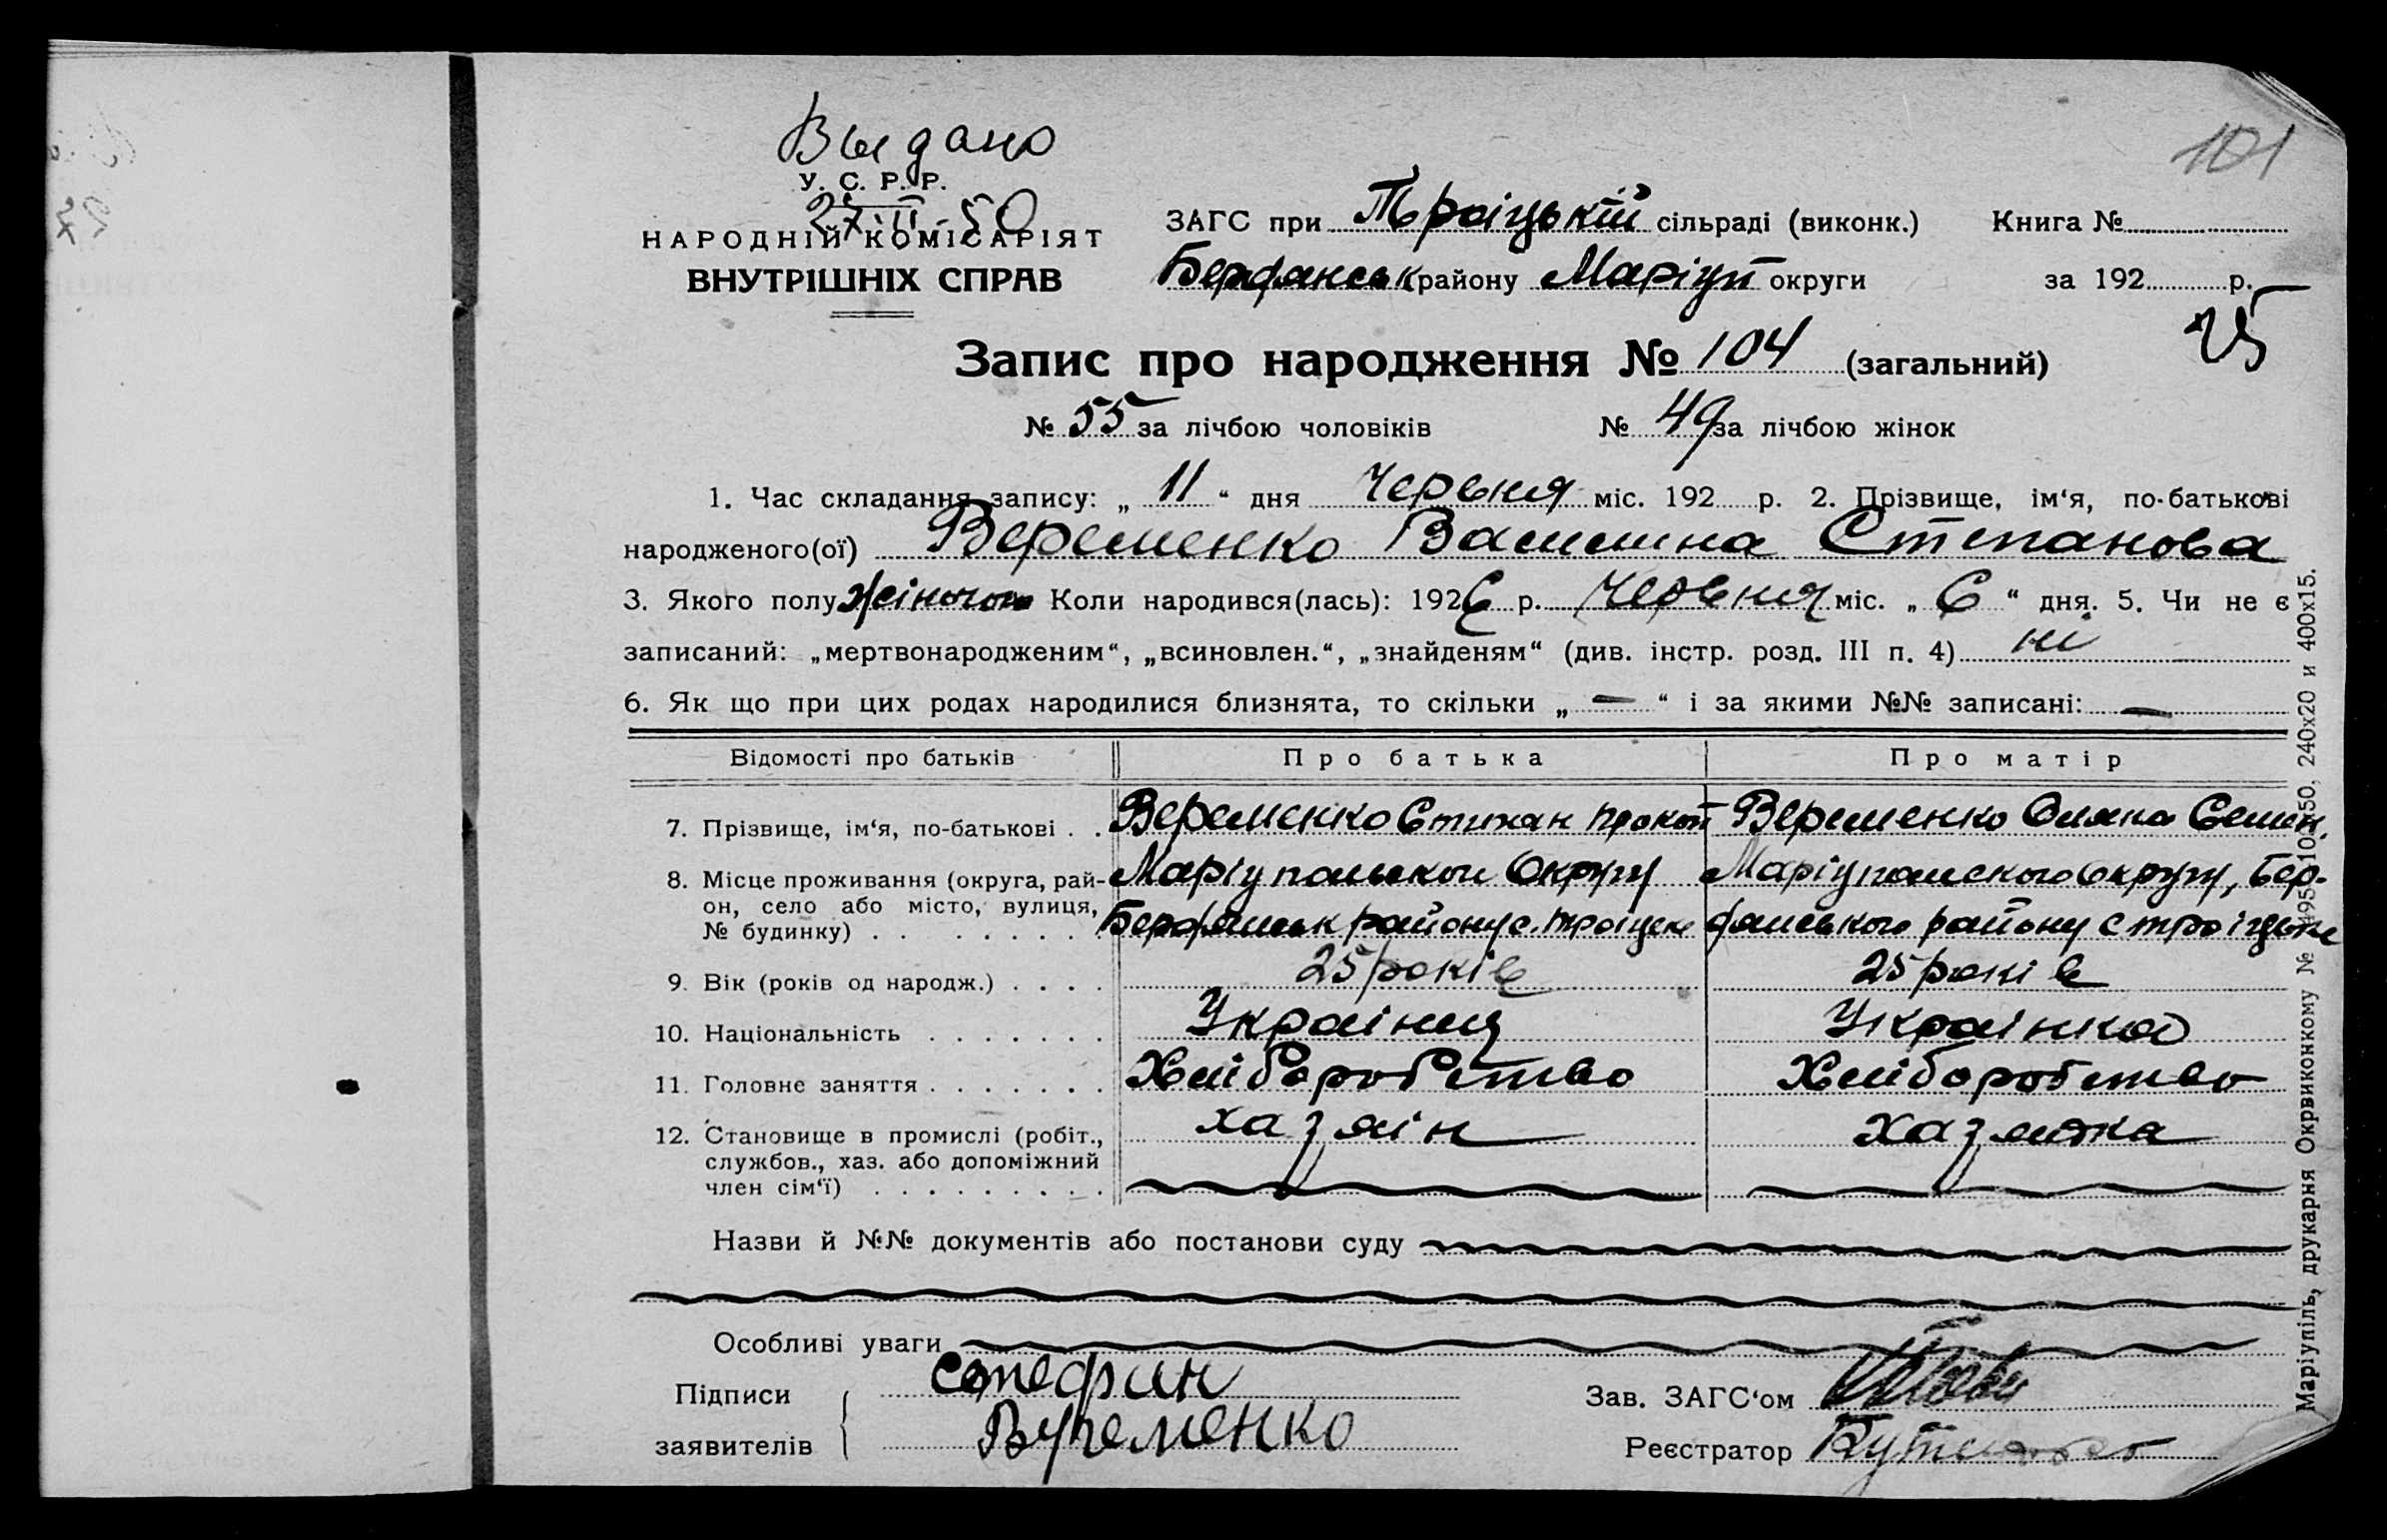 101
Выдано
У. С. Р. Р.
27·II-50
НАРОДНІЙ КОМІСАРІЯТ
ВНУТРІШНІХ СПРАВ
ЗАГС при Троіцькій сільраді (виконк.) Книга №
Бердянськ району Маріуп округи за 192 р.
25
Запис про народження № 104 (загальний)
№ 55 за лічбою чоловіків № 49 за лічбою жінок
1. Час складання запису: „ 11 “ дня Червня міс. 192 р. 2. Прізвище, ім‘я, по-батькові
народженого(ої) Веременко Степанова
3. Якого полу жіночого Коли народився(лась): 1926 р. Червня міс. „ 6 “ дня. 5. Чи не є
записаний: „мертвонародженим“, „всиновлен.“, „знайденям“ (див. інстр. розд. III п. 4) ні
6. Як що при цих родах народилися близнята, то скільки „ — “ і за якими №№ записані: —
Відомості про батьків Про батька Про матір
7. Прізвище, ім‘я, по-батькові . . Веременко Степан Прокоп Веременко Семен.
8. Місце проживання (округа, рай- Маріупольскои Округу Маріупольского округу, Бер-
он, село або місто, вулиця,
№ будинку) . . Бердянськ району с. Троіцьке дянського району с Троіцьке
9. Вік (років од народж.) . . . . 25 років 25 років
10. Національність . . . . . . . Украінец Украінка
11. Головне заняття . . . . . . . Хліборобство Хліборобство
12. Становище в промислі (робіт., хазяін хазяйка
службов., хаз. або допоміжний
член сім‘ї) . . . . . . . . .
Назви й №№ документів або постанови суду
Особливі уваги
Підписи Зав. ЗАГС‘ом
заявителів Вуременко Реєстратор
Маріупіль, друкарня Окрвиконкому № 240x20 и 400x15.